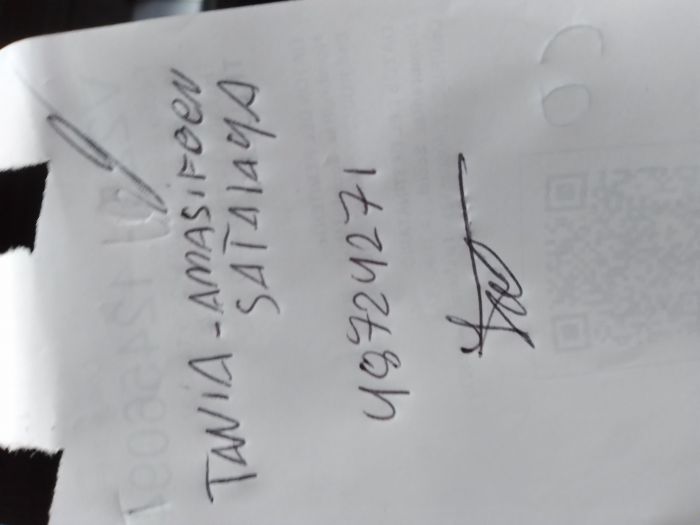 TANIA - AMASIFOEN
SATALAYA
48724271